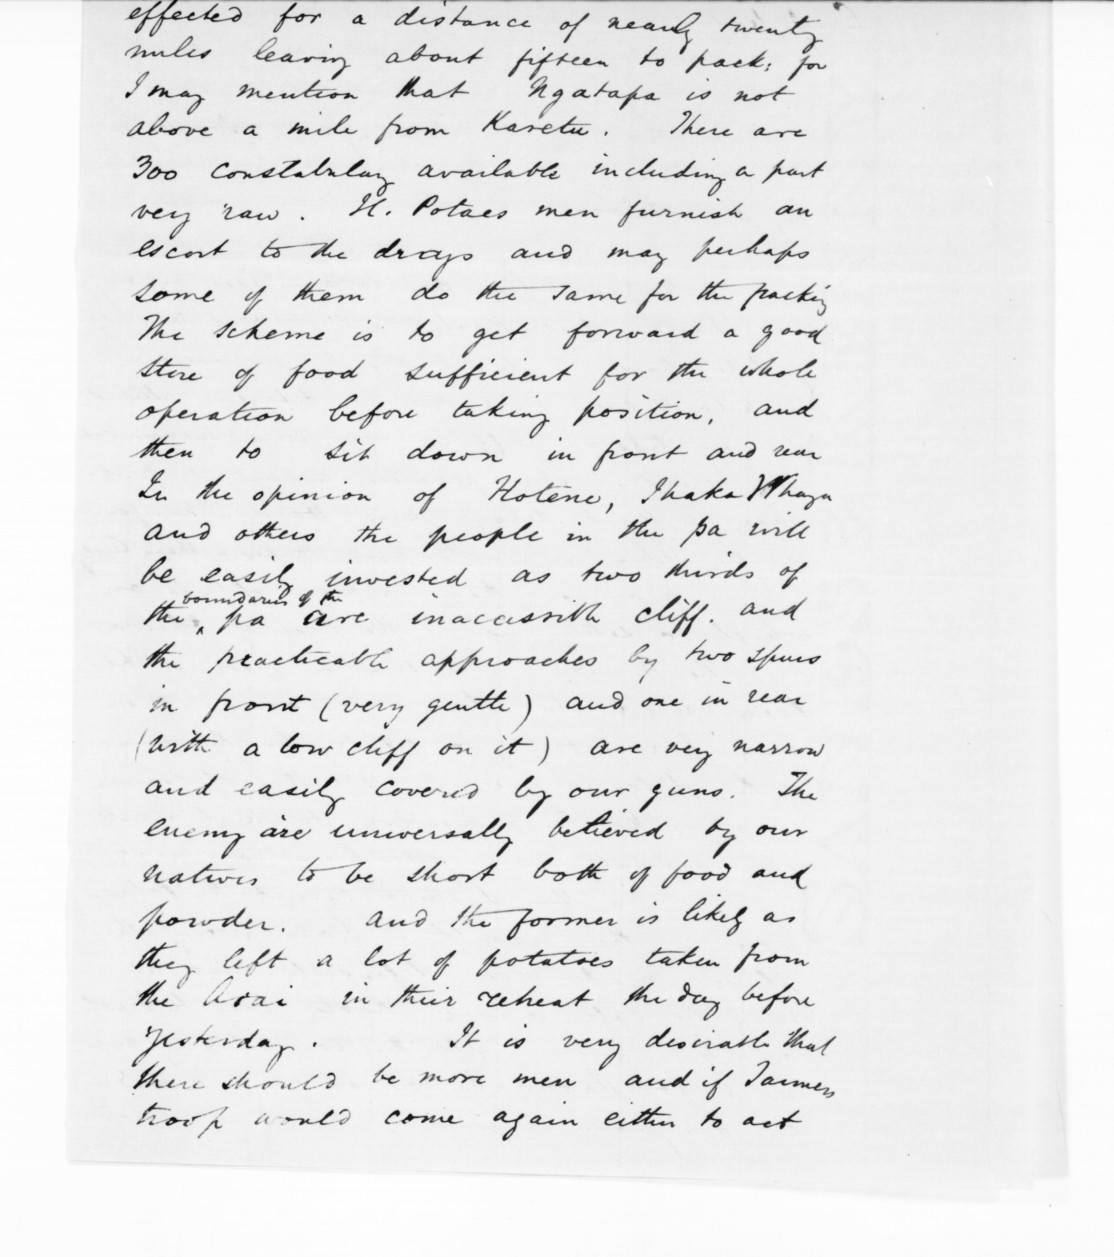 effected for a distance of nearly twenty
miles leaving about fifteen to pack; for
I may mention that Ngatapa is not
above a mile from Karetu. There are
300 constabulary available including a part
very raw. H. Potaes men furnish an
escort to the drays and may perhaps
some of them do the same for the packing
The scheme is to get forward a good
store of food sufficient for the whole
operation before taking position, and
then to sit down in front and rear
In the opinion of Hotene, Ihaka Whanga
and others the people in the pa will
be easily invested as two thirds of
the boundaries of the pa are inaccessible cliff. and
the practicable approaches by two spurs
in front (very gentle) and one in rear
(with a low cliff on it) are very narrow
and easily covered by our guns. The
enemy are universally believed by our
natives to be short both of food and
powder. and the former is likely as
they left a lot of potatoes taken from
the Arai in their retreat the day before
yesterday. It is very desirable that
there should be more men and if
troop would come again either to act